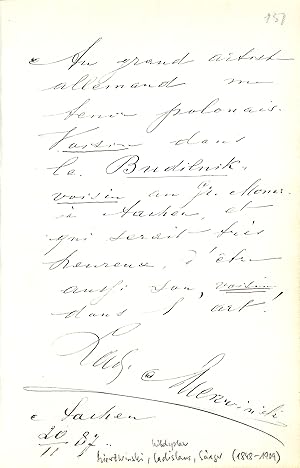 157
Au grand artist
allemand un
tenor polonais.
Voisin dans
le Budilnik,
voisin au gr. Monu
à Aachen, et
qui serait très
heureux, d'être
aussi son voisin
dans l'art!
Lad. Mierwinski
Aachen
20/11 87.
Wladyslaw
Mierzwinski, Ladislaus, Sänger (1848-1909)